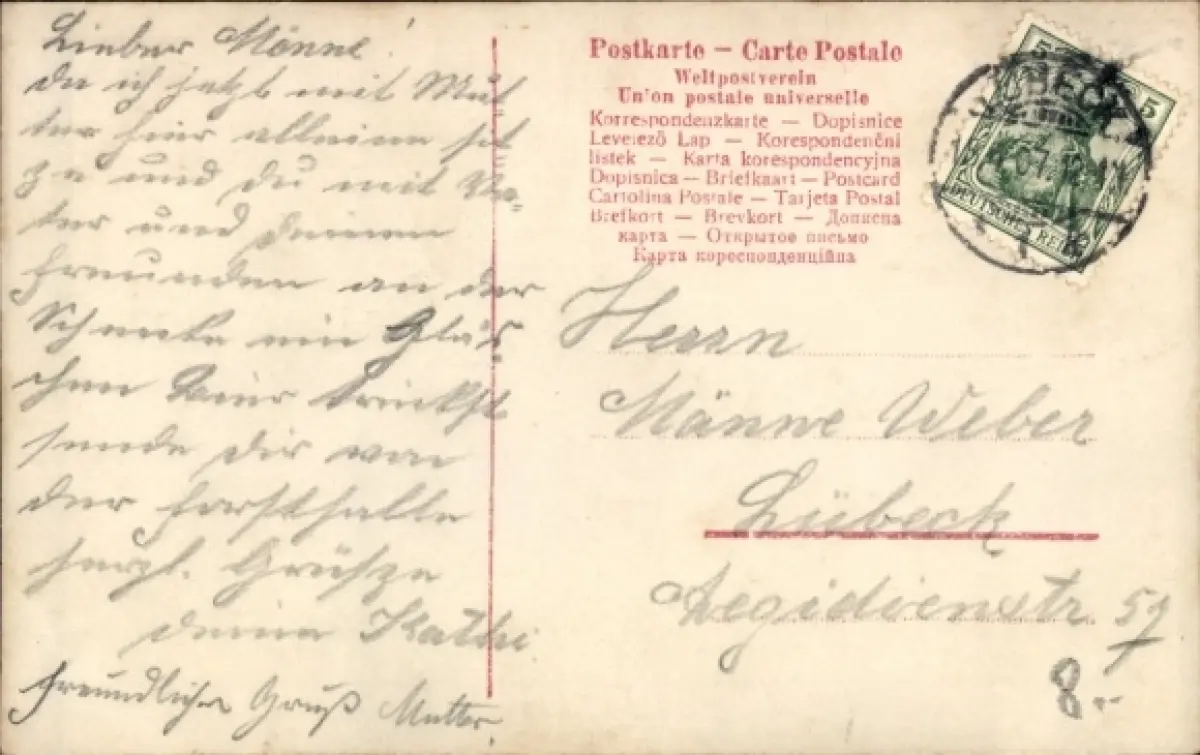 Lieber Männe!
da ich jetzt mit Mut
ter hier alleine sit
ze und du mit Va-
ter und deinen
Freunden an der
Schneke ein Gläs
chen Bier trinkst
sende dir von
der Forsthalle
herzl. Grüsze
deine Käthi
Freundlichen Gruß Mutter.
Postkarte – Carte Postale
Weltpostverein
Union postale universelle
Korrespondenzkarte – Dopisnice
Levelező Lap – Korespondenční
lístek – Karta korespondencyjna
Dopisnica – Briefkaart – Postcard
Cartolina Postale – Tarjeta Postal
Brefkort – Brevkort – Дописна
карта – Открытое письмо
Карта кореспонденційна
5 5
DEUTSCHES REICH
LÜBECK
Herrn
Männe Weber
Lübeck
Aegidienstr 57
8.-